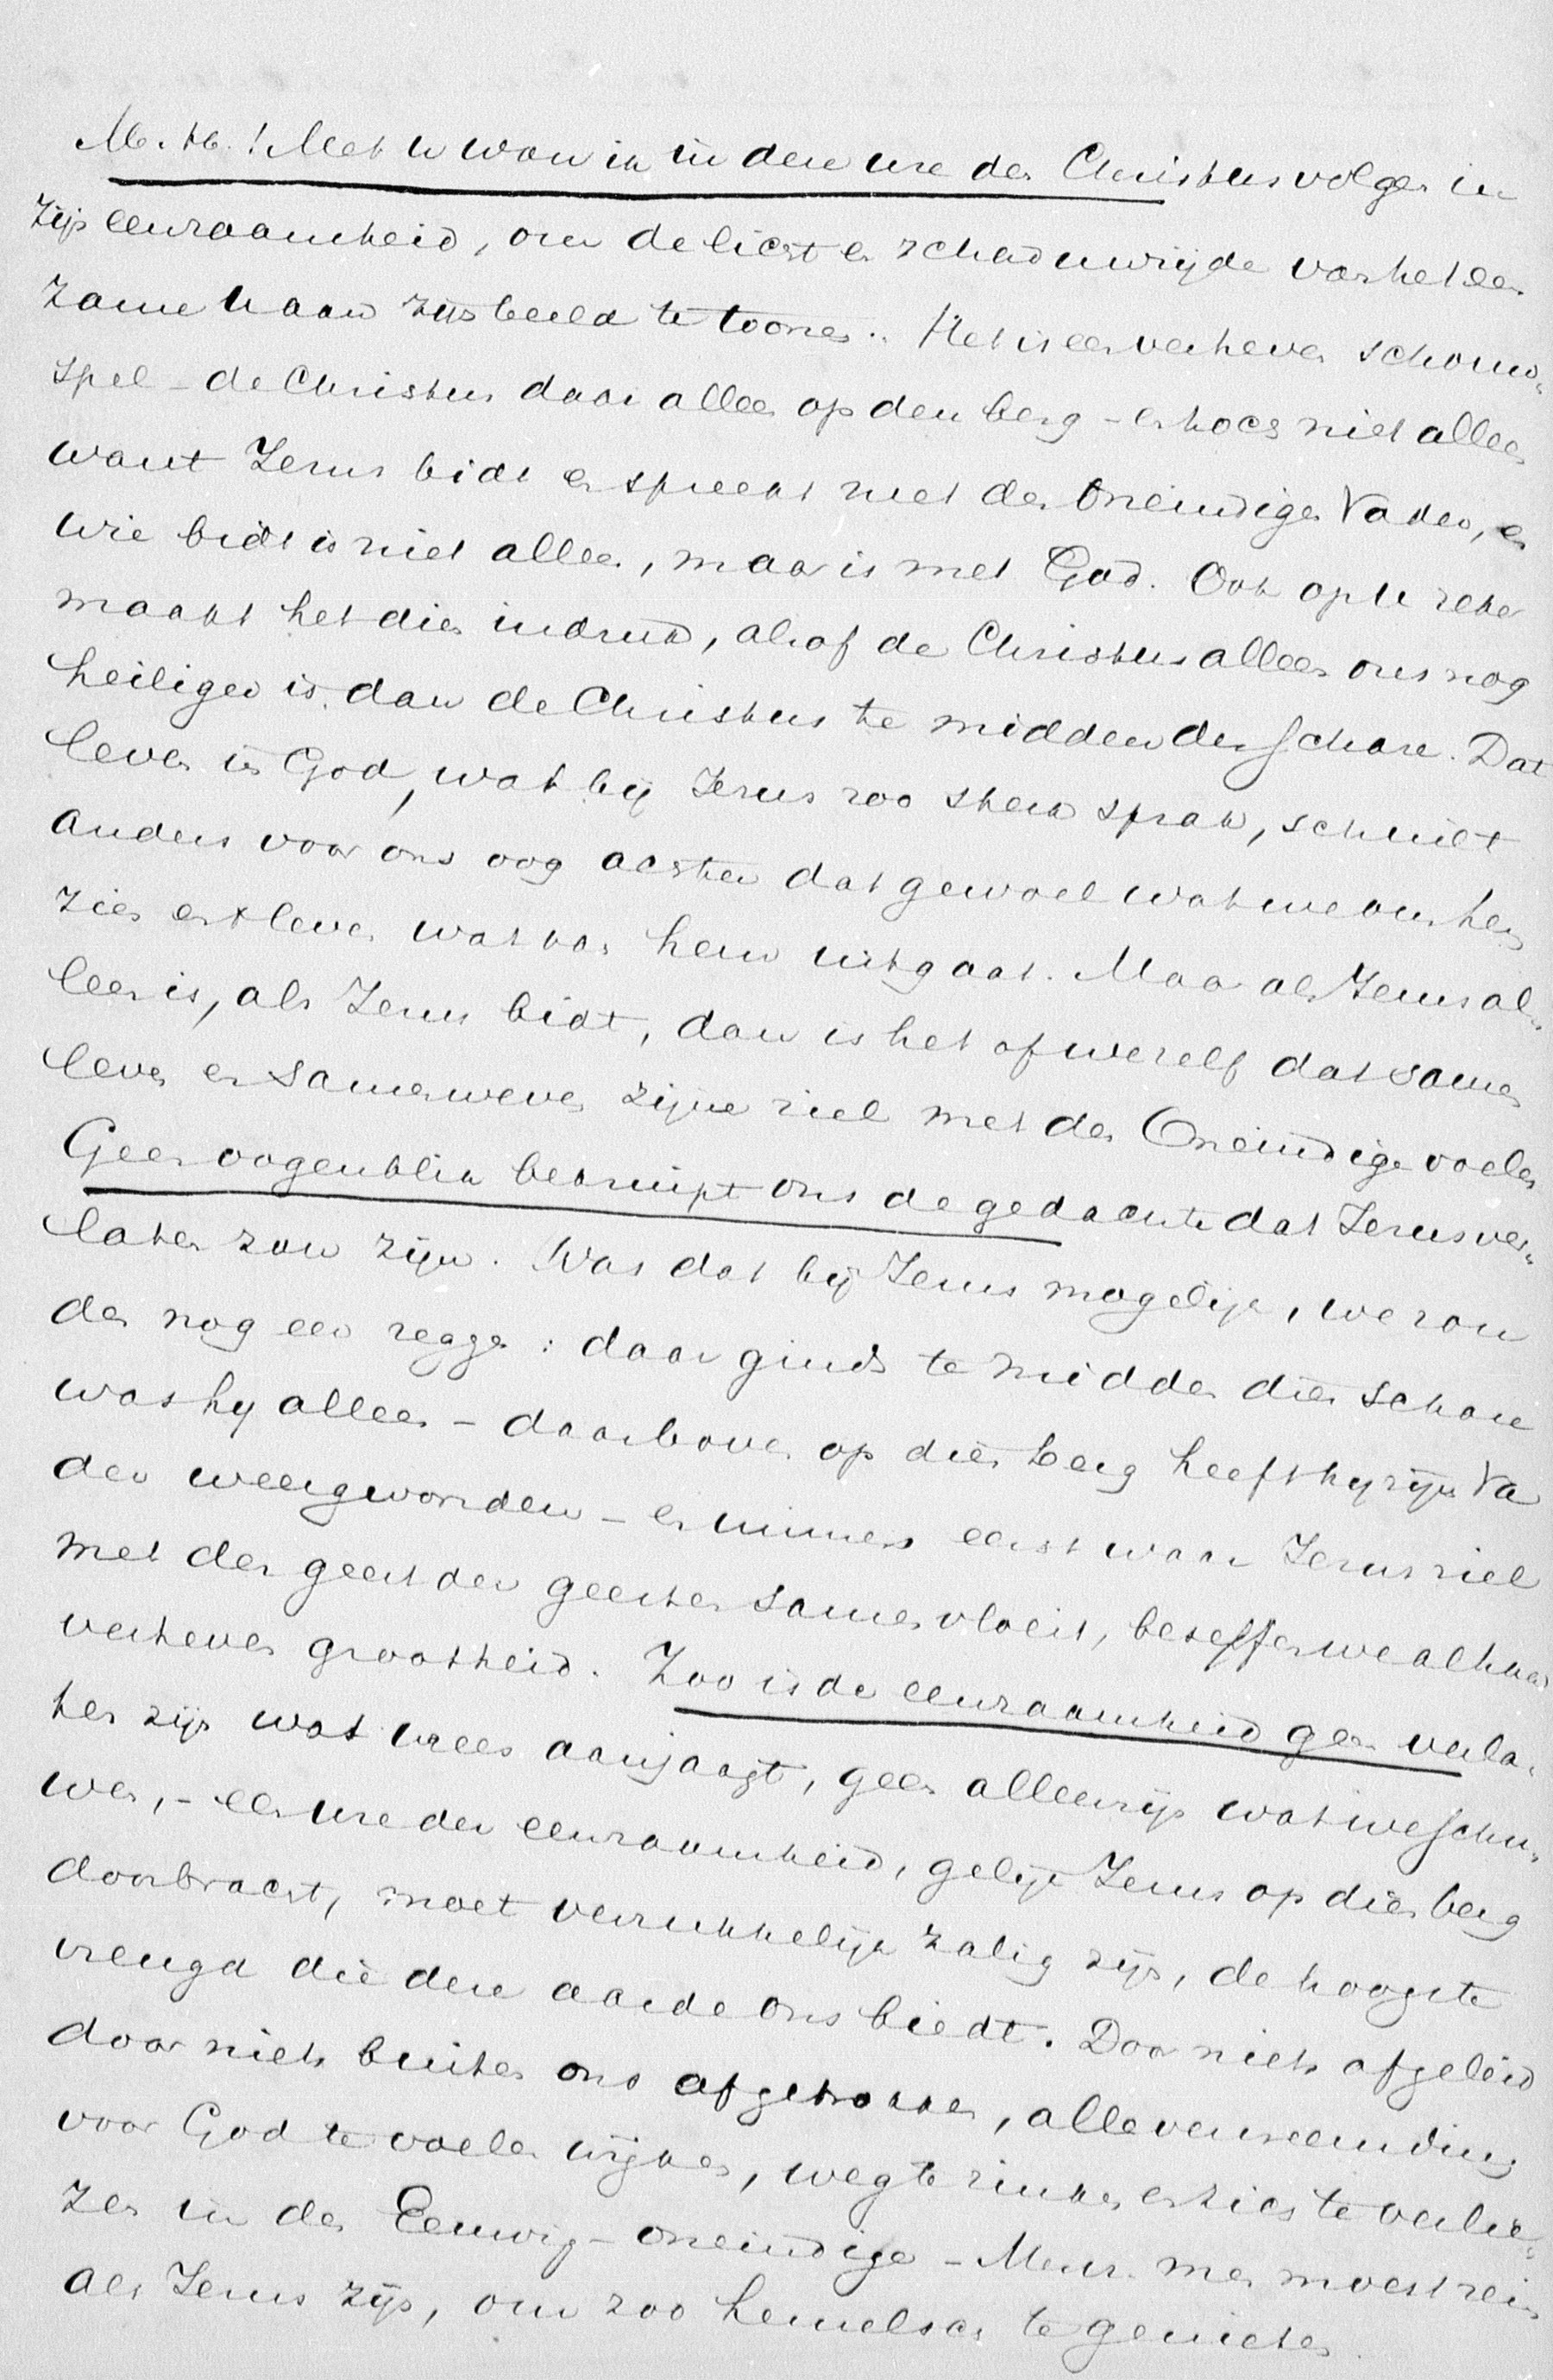 M. H.! Met U wou ik in deze ure den Christus volgen in
zijn eenzaamheid, om de licht en schaduwzijde van het een-
zame naar zijn beeld te toonen. Het is een verheven schouw-
spel – de Christus daar alleen op den berg – en toch niet alleen
want Jezus bidt en spreekt met den Oneindigen Vader, en
wie bidt is niet alleen, maar is met God. Ook op U zeker
maakt het dien indruk, alsof de Christus alleen ons nog
heiliger is dan de Christus te midden der schare. Dat
leven in God, wat bij Jezus zoo sterk sprak, schuilt
anders voor ons oog achter dat gewoel wat we om hem
zien en 't leven wat van hem uitgaat. Maar als Jezus al-
leen is, als Jezus bidt, dan is het of we zelf dat samen
leven en samenweven zijner ziel met den Oneindige voelen
Geen oogenblik bekruipt ons de gedachte dat Jezus ver-
laten zou zijn. Was dat bij Jezus mogelijk, we zou
den nog eer zeggen: daar ginds te midden dier schare
was hij alleen – daarboven op dien berg heeft hij zijn Va
der weergevonden – en immers eerst waar Jezus ziel
met den geest der geesten samenvloeit, beseffen we al haar
verheven grootheid. Zoo is de eenzaamheid geen verla-
ten zijn wat vrees aanjaagt, geen alleenzijn wat we schu-
wen, – een ure der eenzaamheid, gelijk Jezus op dien berg
doorbracht, moet verrukkelijk zalig zijn, de hoogste
vreugd die deze aarde ons biedt. Door niets afgeleid
door niets buiten ons afgetrokken, alle vervreemding
voor God te voelen wijken, weg te zinken en zich te verlie-
zen in den Eeuwig-oneindige – Maar men moest rein
als Jezus zijn, om zoo hemelsch te genieten.